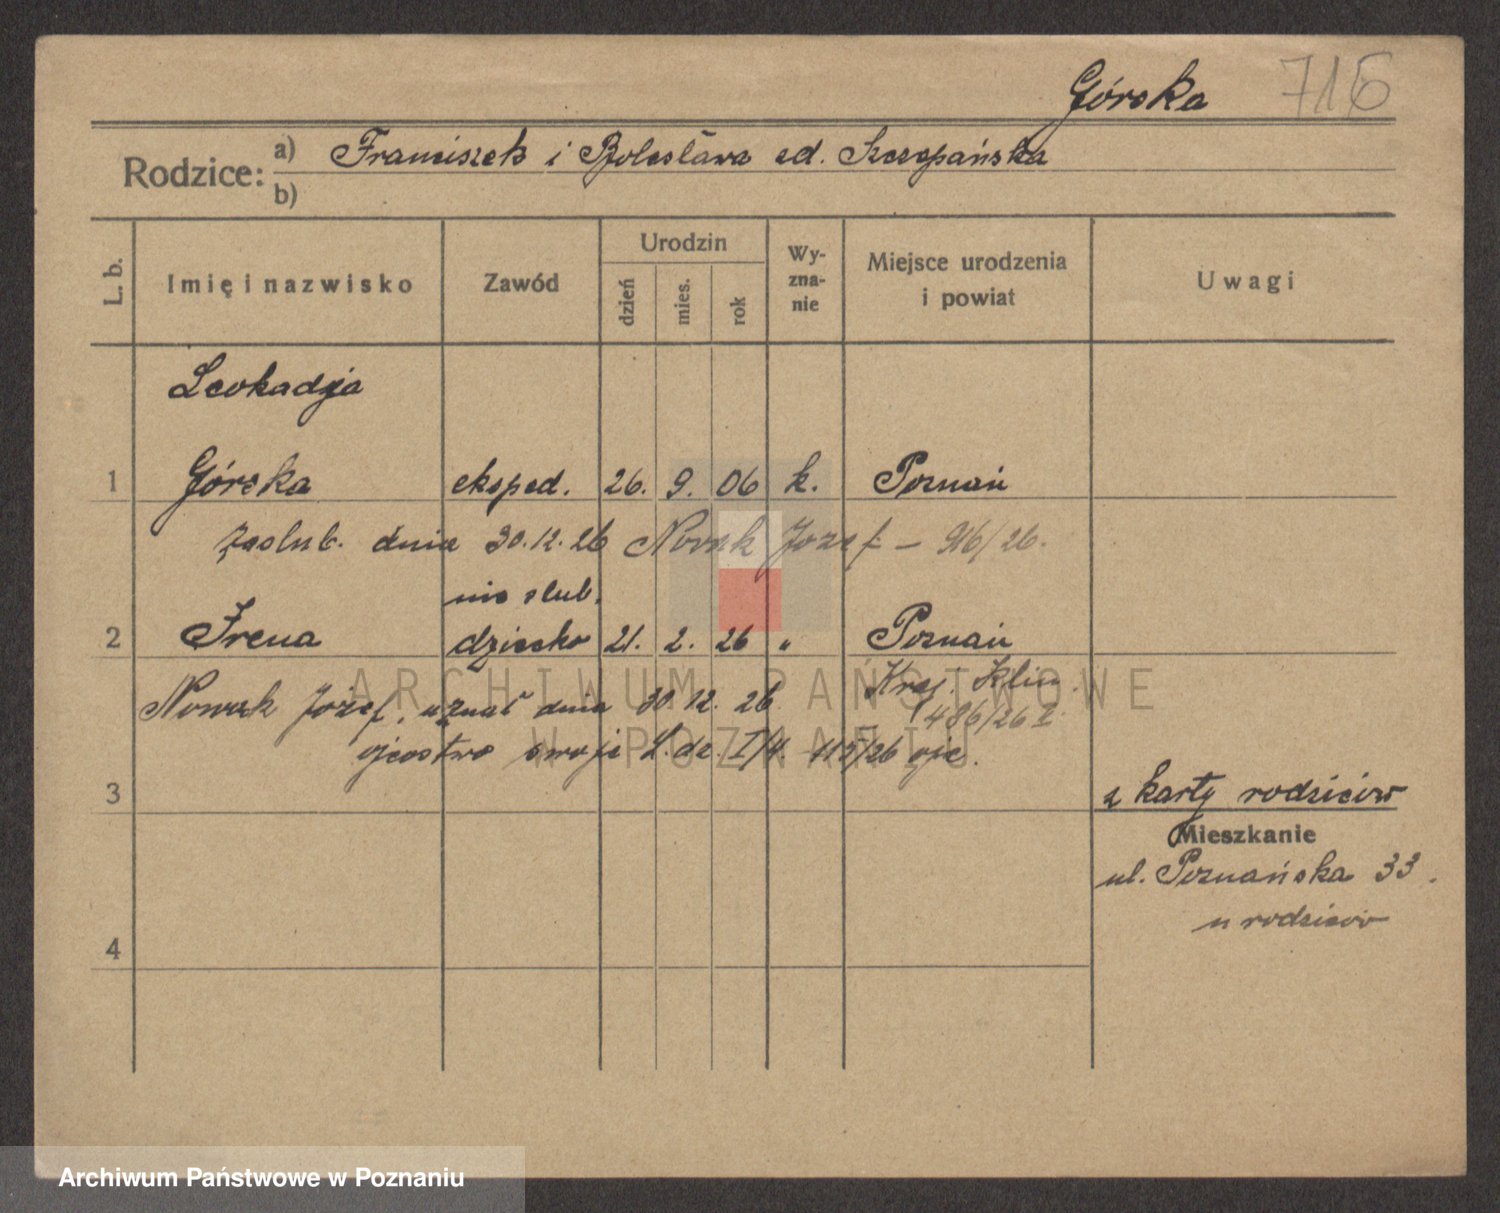 Górska 716
Rodzice: a) Franciszek i Bolesława zd. Szczepańska
b)
L. b. Imię i nazwisko Zawód Urodzin dzień mies. rok Wy-zna-nie Miejsce urodzenia i powiat Uwagi
Leokadja
1 Górska eksped. 26. 9. 06 k. Poznań
Zaślub. dnia 30.12.26 Nowak Józef – 916/26.
nieślub.
2 Irena dziecko 21. 2. 26 " Poznań
Nowak Józef, uznał dnia 30.12.26 Kraj. Klin.
486/26 I.
ojcostwo swoje L.dz. I/4. 115/26 ojc.
3 z karty rodziców
Mieszkanie
ul. Poznańska 33.
u rodziców
4
ARCHIWUM PAŃSTWOWE
W POZNANIU
Archiwum Państwowe w Poznaniu